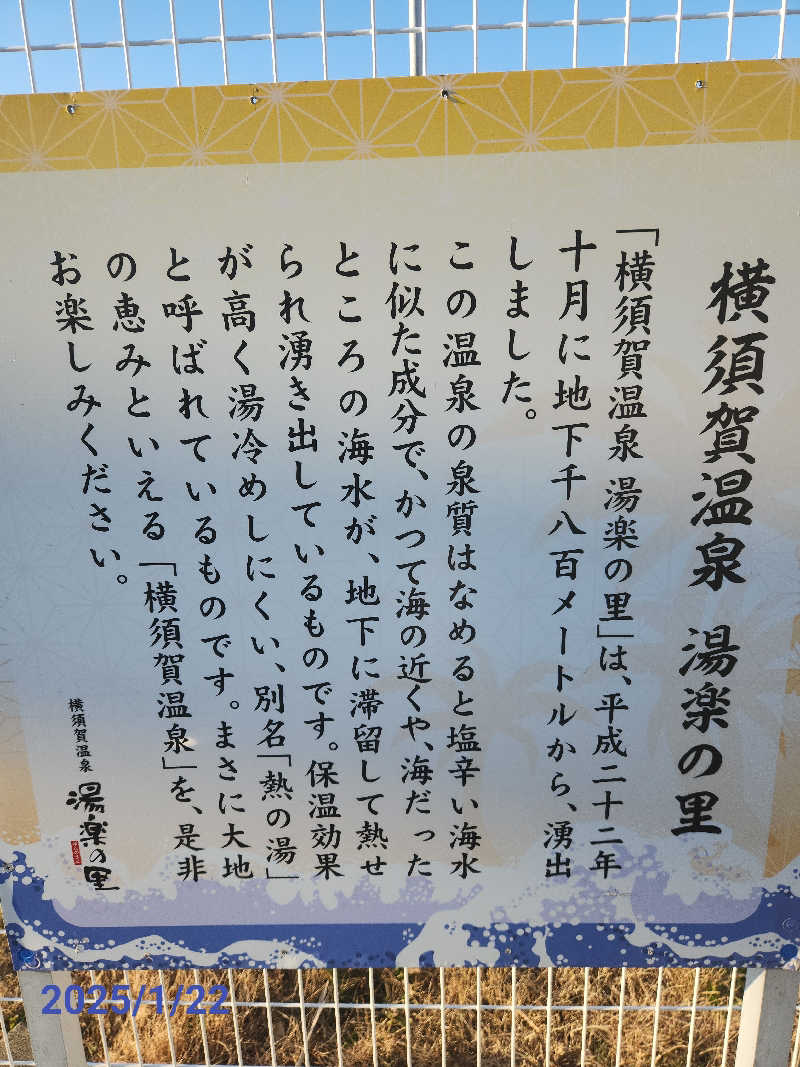 横須賀温泉 湯楽の里
「横須賀温泉 湯楽の里」は、平成二十二年
十月に地下千八百メートルから、湧出
しました。
この温泉の泉質はなめると塩辛い海水
に似た成分で、かつて海の近くや、海だった
ところの海水が、地下に滞留して熱せ
られ湧き出しているものです。保温効果
が高く湯冷めしにくい、別名「熱の湯」
と呼ばれているものです。まさに大地
の恵みといえる「横須賀温泉」を、是非
お楽しみください。
横須賀温泉
湯楽の里
2025/1/22